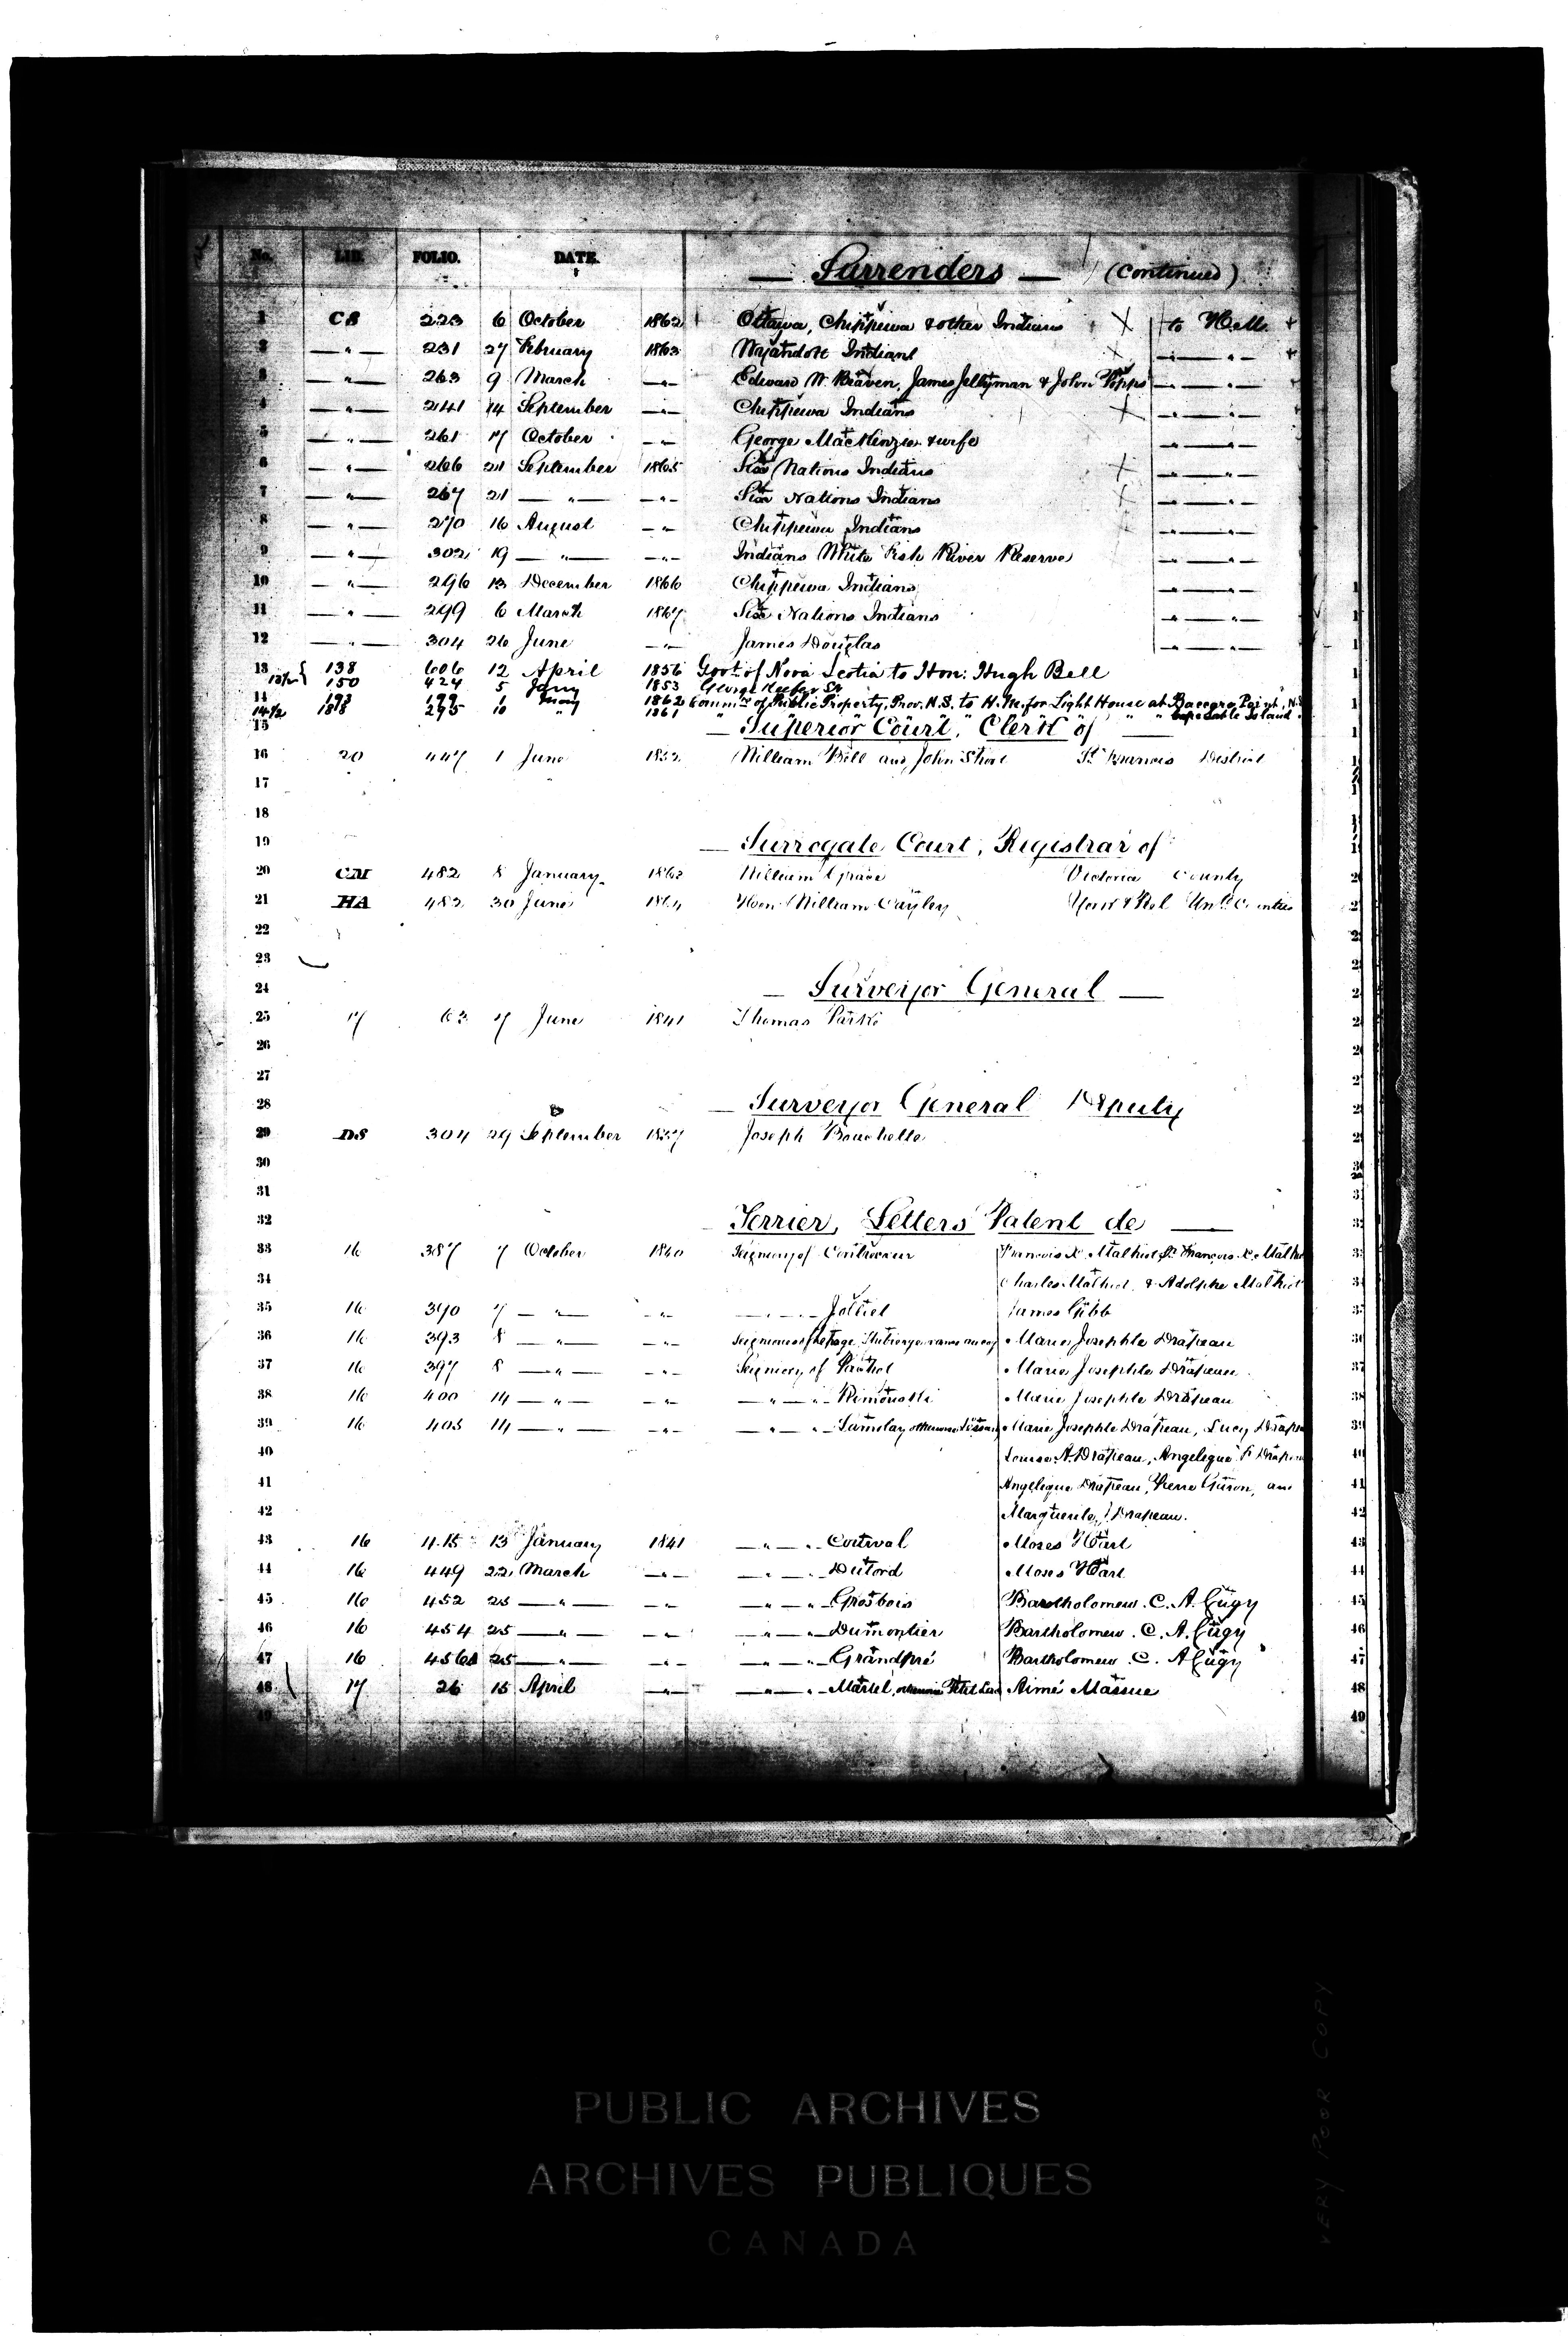 No. LIB. FOLIO. DATE. — Surrenders — (Continued)
1 CB 223 6 October 1862 Ottawa, Chippewa & other Indians X to H.M.
2 — " — 231 27 February 1863 Wyandott Indians X — " —
3 — " — 263 9 March — " — Edward W. Beaven, James Jellyman & John Phipps — " —
4 — " — 241 14 September — " — Chippewa Indians X — " —
5 — " — 261 17 October — " — George MacKenzie & wife — " —
6 — " — 266 21 September 1865 Six Nations Indians X — " —
7 — " — 267 21 — " — — " — Six Nations Indians X — " —
8 — " — 270 16 August — " — Chippewa Indians — " —
9 — " — 302 19 — " — — " — Indians White Fish River Reserve — " —
10 — " — 296 13 December 1866 Chippewa Indians — " —
11 — " — 299 6 March 1867 Six Nations Indians — " —
12 — " — 304 26 June — " — James Douglas — " —
13 138 606 12 April 1856 Govt. of Nova Scotia to Hon: Hugh Bell
13½ 150 424 5 Jany 1853 George Keefer Sr
14 193 199 1 May 1862 Commrs of Public Property, Prov. N.S. to H.M. for Light House at Baccaro Point, N.S.
14½ 188 295 10 " 1861 " " " Sable Island
15 — Superior Court, Clerk of —
16 20 447 1 June 1852 William Bell and John Short St. Francis District
17
18
19 — Surrogate Court, Registrar of
20 CM 482 8 January 1863 William Grace Victoria County
21 HA 482 30 June 1864 Honl. William Cayley York & Peel Untd. Counties
22
23
24 — Surveyor General —
25 17 63 7 June 1841 Thomas Parke
26
27
28 — Surveyor General Deputy
29 DS 304 29 September 1837 Joseph Bouchette
30
31
32 Terrier, Letters Patent de —
33 16 387 7 October 1840 Seigniory of Contrecoeur Francois X. Malhiot, Francois X. Malhiot
34 Charles Malhiot & Adolphe Malhiot
35 16 390 7 — " — — " — — " — Jolliet James Gibb
36 16 393 8 — " — — " — Marie Josephte Drapeau
37 16 397 8 — " — — " — Seigniory of Pachot Marie Josephte Drapeau
38 16 400 14 — " — — " — — " — " Rimouski Marie Josephte Drapeau
39 16 403 14 — " — — " — — " — " otherwise Marie Josephte Drapeau, Lucy Drapeau
40 Louisa A. Drapeau, Angelique F. Drapeau
41 Angelique Drapeau, Pierre Garon, and
42 Marguerite J. Drapeau.
43 16 415 13 January 1841 — " — " Courval Moses Hart
44 16 449 22 March — " — — " — " Dutord Moses Hart
45 16 452 25 — " — — " — — " — " Grosbois Bartholomew. C. A. Gugy
46 16 454 25 — " — — " — — " — " Dumontier Bartholomew. C. A. Gugy
47 16 456 25 — " — — " — — " — " Grandpré Bartholomew. C. A Gugy
48 17 26 15 April — " — — " — " Martel, otherwise Aimé Massue
49
PUBLIC ARCHIVES
ARCHIVES PUBLIQUES
CANADA
VERY POOR COPY